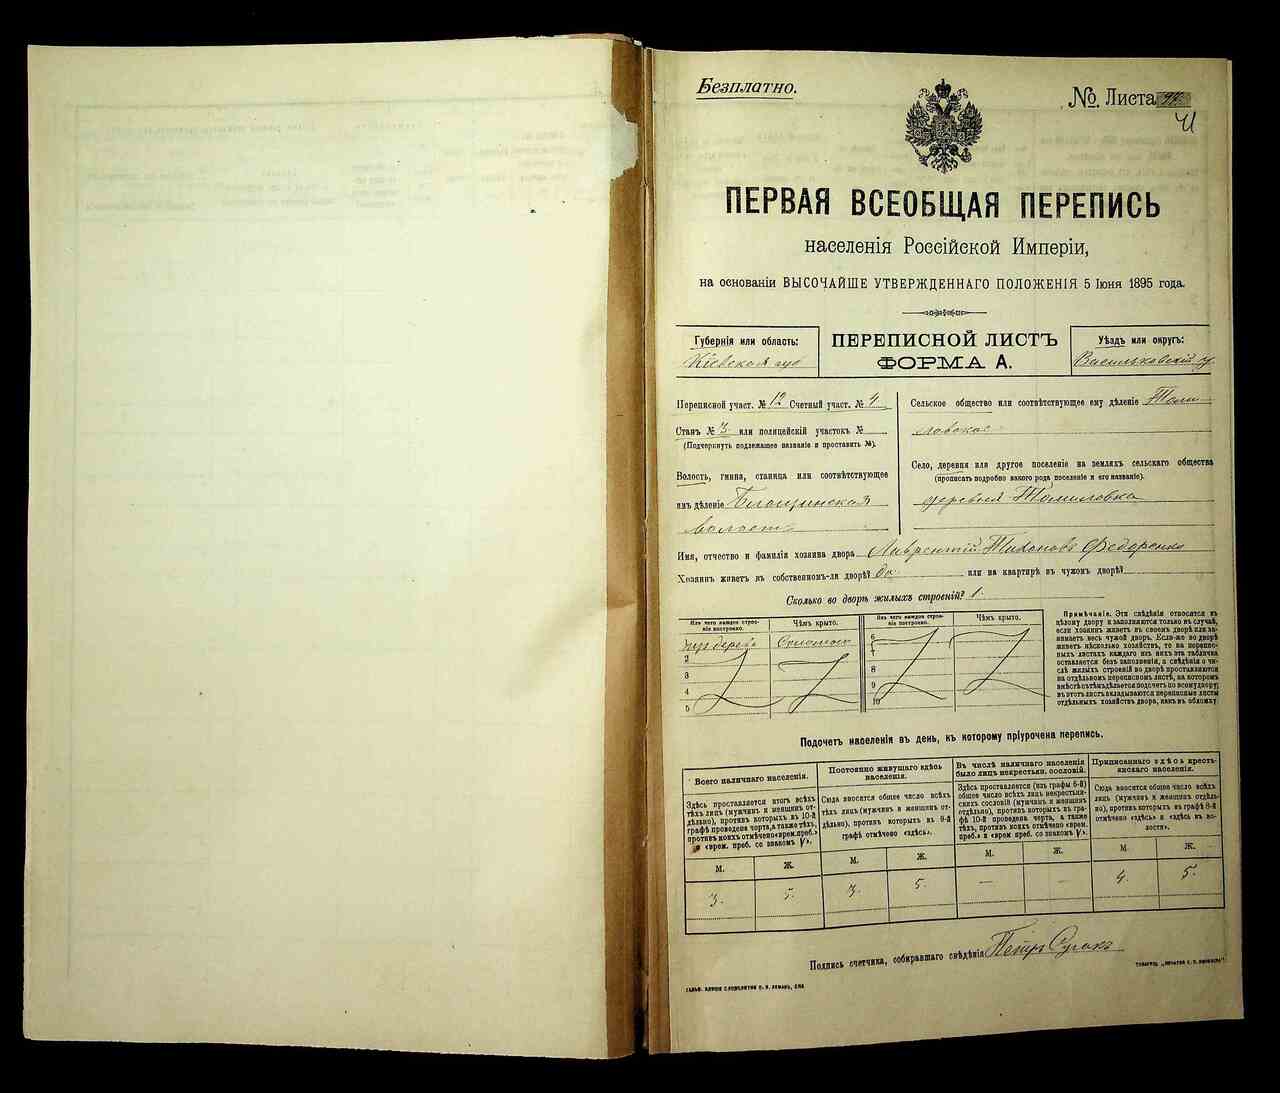 Безплатно.
№ Листа
ПЕРВАЯ ВСЕОБЩАЯ ПЕРЕПИСЬ
населенія Россійской Имперіи,
на основаніи ВЫСОЧАЙШЕ УТВЕРЖДЕННАГО ПОЛОЖЕНІЯ 5 Іюня 1895 года.
Губернія или область:
Кіевская губ
ПЕРЕПИСНОЙ ЛИСТЪ
ФОРМА А.
Уѣздъ или округъ:
Васильковскій у.
Переписной участ. № 12 Счетный участ. № 4
Станъ № 3 или полицейскій участокъ №
(Подчеркнуть подлежащее названіе и проставить №).
Волость, гмина, станица или соотвѣтствующее
имъ дѣленіе Блощинская
волость
Сельское общество или соотвѣтствующее ему дѣленіе Томи-
ловское
Село, деревня или другое поселеніе на земляхъ сельскаго общества
(прописать подробно какого рода поселеніе и его названіе).
деревня Томиловка
Имя, отчество и фамилія хозяина двора Лаврентій Тихоновъ Федоренко
Хозяинъ живетъ въ собственномъ-ли дворѣ? да или на квартирѣ въ чужомъ дворѣ?
Сколько во дворѣ жилыхъ строеній? 1.
Изъ чего каждое строе-
ніе построено.
Чѣмъ крыто.
Изъ чего каждое строе-
ніе построено.
Чѣмъ крыто.
изъ дерева Соломою
2
3
4
5
6
7
8
9
10
Примѣчаніе. Эти свѣдѣнія относятся къ
цѣлому двору и заполняются только въ случаѣ,
если хозяинъ живетъ въ своемъ дворѣ или за-
нимаетъ весь чужой дворъ. Если-же во дворѣ
живетъ нѣсколько хозяйствъ, то на перепис-
ныхъ листахъ каждаго изъ нихъ эта табличка
оставляется безъ заполненія, а свѣдѣнія о чи-
слѣ жилыхъ строеній во дворѣ проставляются
на отдѣльномъ переписномъ листѣ, на которомъ
вмѣстѣ съ тѣмъ дѣлается подсчетъ по всему двору;
въ этотъ листъ вкладываются переписные листы
отдѣльныхъ хозяйствъ двора, какъ въ обложку.
Подсчетъ населенія въ день, къ которому пріурочена перепись.
Всего наличнаго населенія.
Здѣсь проставляется итогъ всѣхъ
тѣхъ лицъ (мужчинъ и женщинъ от-
дѣльно), противъ которыхъ въ 10-й
графѣ проведена черта, а также тѣхъ,
противъ коихъ отмѣчено «врем. преб.»
и «врем. преб. со знакомъ V».
Постоянно живущаго здѣсь
населенія.
Сюда вносится общее число всѣхъ
тѣхъ лицъ (мужчинъ и женщинъ от-
дѣльно), противъ которыхъ въ 9-й
графѣ отмѣчено «здѣсь».
Въ числѣ наличнаго населенія
было лицъ некрестьян. сословій.
Здѣсь проставляется (изъ графы 6-й)
общее число всѣхъ лицъ некрестьян-
скихъ сословій (мужчинъ и женщинъ
отдѣльно), противъ которыхъ въ гра-
фѣ 10-й проведена черта, а также
тѣхъ, противъ коихъ отмѣчено «врем.
преб.» и «врем преб. со знакомъ V».
Приписаннаго здѣсь кресть-
янскаго населенія.
Сюда вносится общее число всѣхъ
лицъ (мужчинъ и женщинъ отдѣль-
но), противъ которыхъ въ графѣ 8-й
отмѣчено «здѣсь» и «здѣсь въ во-
лости».
М. Ж. М. Ж. М. Ж. М Ж.
3. 5. 3. 5. — — 4. 5.
Подпись счетчика, собиравшаго свѣдѣнія Петръ